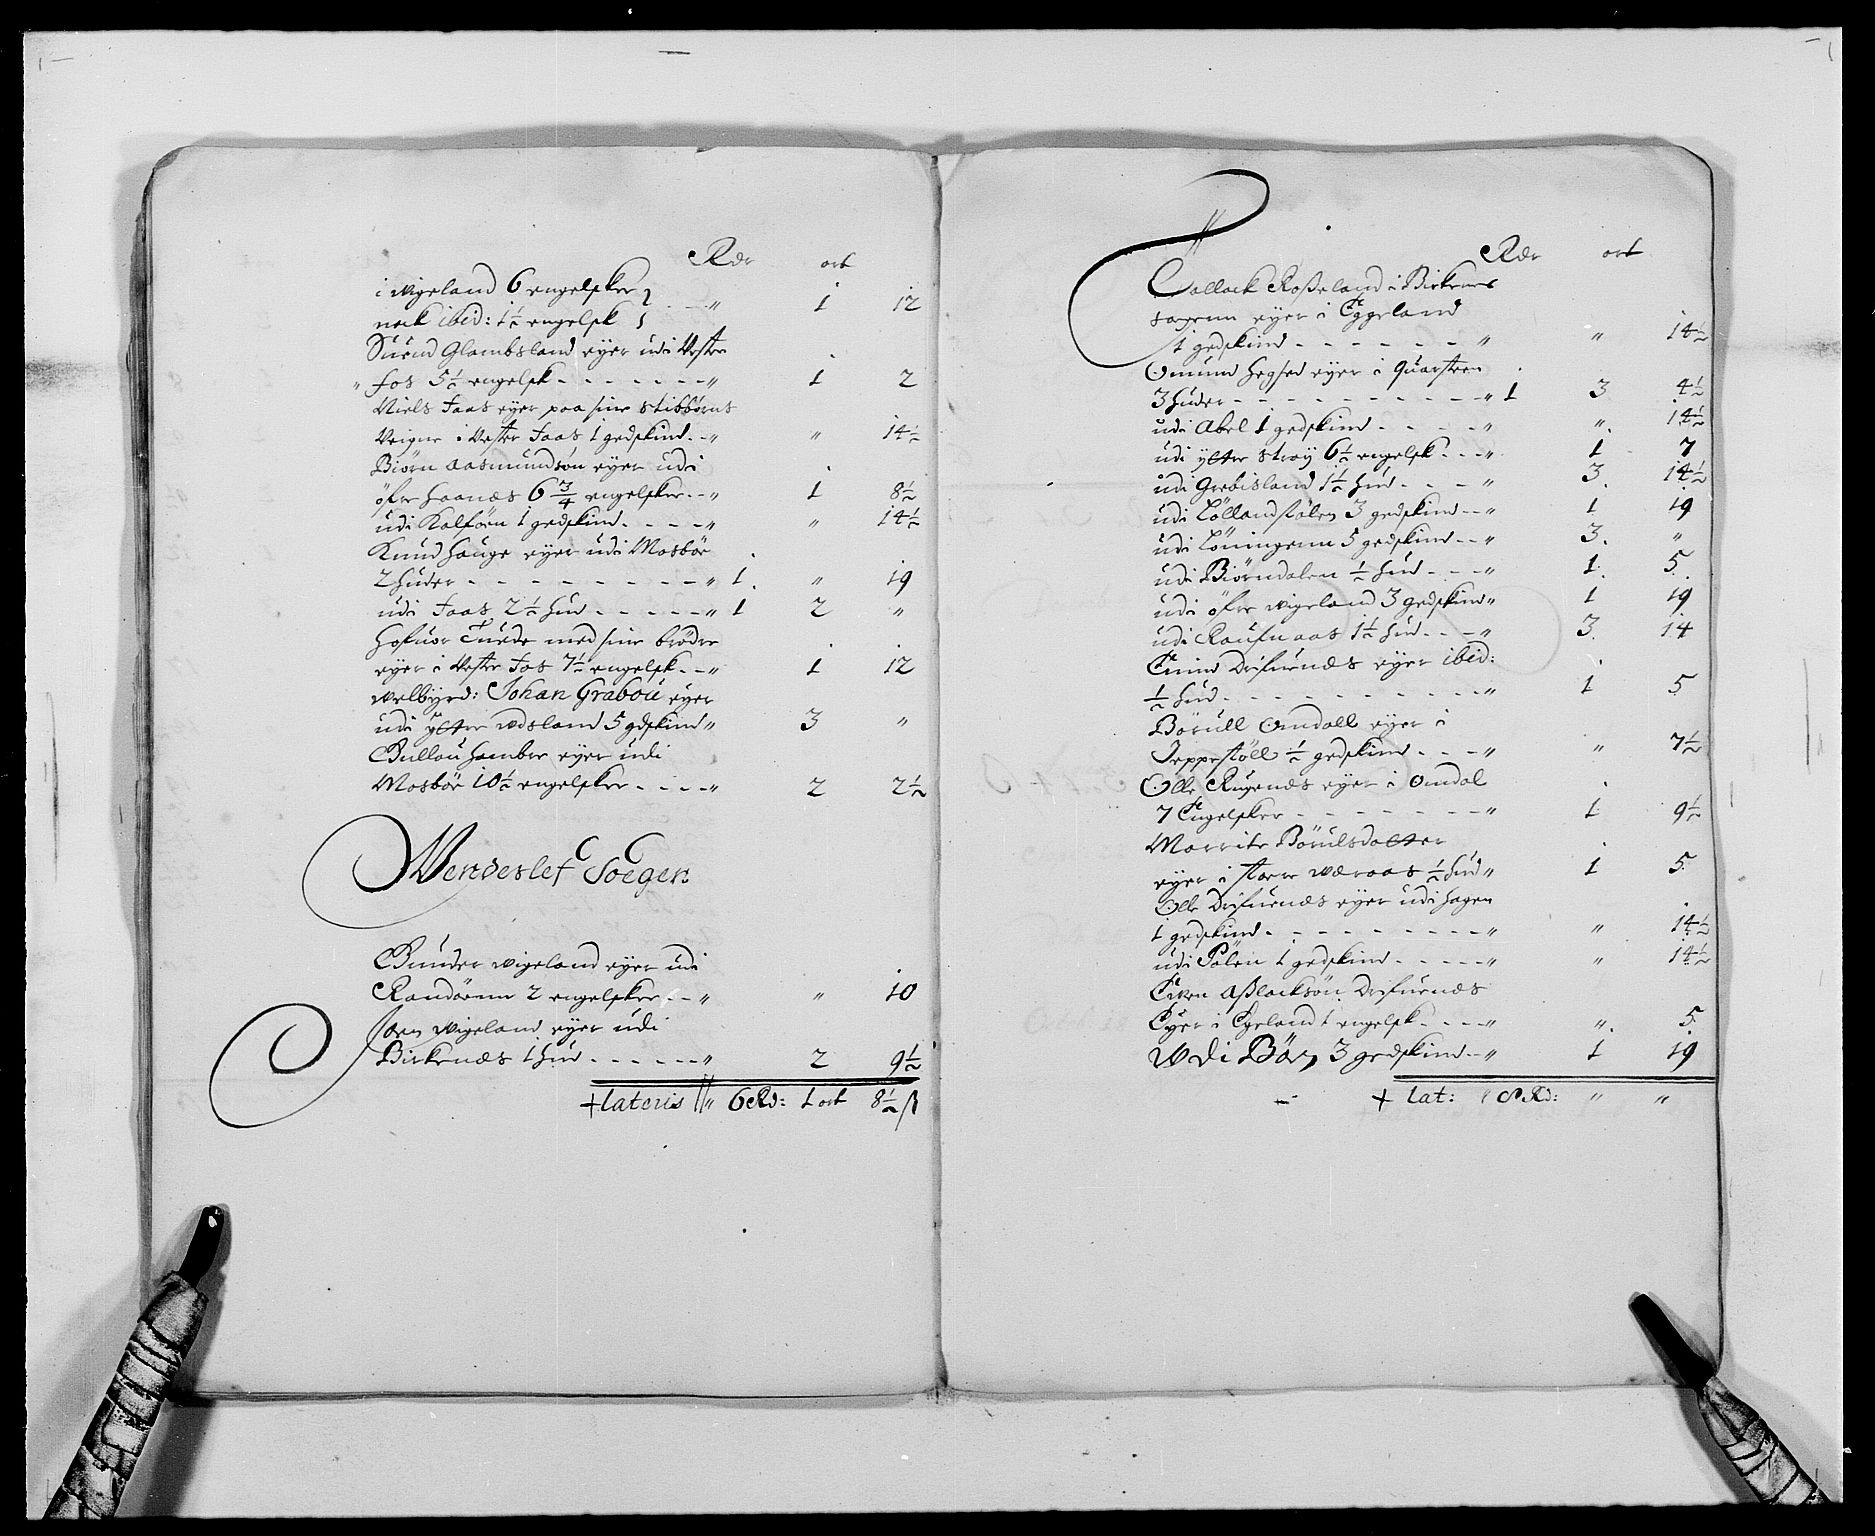 Rdr ort
i wigeland 6 engelsker
nock ibid: 1½ engelsk - - " 1 12
Suend Glambsland eyer udi Vester
" fos 5½ engelsk - - - - - - - " 1 2
Niels Faas eyer paa sine Stibbørns
Veigne i Vester Faas 1 gedskind - - " " 14½
Biørn Aasmundsøn eyer udi
øfre Haanæs 6¾ engelsker - - " 1 8½
udi Kalføen 1 gedskind - - - - " " 14½
Knud Houge eyer udi Mosbøe
2 huder - - - - - - - - - " 1 " 19
udi Faas 2½ hud - - - - - " 1 2 "
Hofuor Tuede med sine brødre
eyer i Vester Fos 7½ engelsk - - " 1 12
welbyrd: Johan Grabou eyer
udi ytter wdsland 5 gdskind " 3 "
Gullou Hamber eyer udi
Mosbøe 10½ engelsker - - - - " 2 2½
Wenneslef Soegen
Gunder wigeland eyer udi
Randøenn 2 engelsker - - " " 10
Joen wigeland eyer udi
Birkenæs 1 hud - - - - - - " 2 9½
+ lateris " 6 Rd: 1 ort 8½ ß
Rdr ort
Tallack Roßeland i Birkenes
sogenn eyer i Eggeland
1 gedskind - - - - - - " " 14½
Omund Hegsed eyer i Quarsteen
3 huder - - - - - - - - - - " 1 3 4½
udi Abel 1 gedskind - - - - - " " 14½
udi ytter Strøy 6½ engelsk - - - " 1 7
udi Grebisland 1½ hud - - - " 3 14½
udi Løllandstølen 3 gedskind - - " 1 19
udi Løningenn 5 gedskind - - " 3 "
udi Biørndalen ½ hud - - - " 1 5
udi øfre wigeland 3 gedskind " 1 19
udi Raufnaas 1½ hud - - - " 3 14
Enind Drifuenæs eyer ibid:
½ hud - - - - - - - - - - " 1 5
Børull Omdall eyer i
Jeppestøll ½ gedskind - - - " " 7½
Olle Rugenæs eyer i Omdal
7 Engelsker - - - - - - - " 1 9½
Marrite Børulsdatter
eyer i store Wæraas ½ hud " 1 5
Olle Drifuenæs eyer udi Hagen
1 gedskind - - - - - - - - - " " 14½
udi Pølen 1 gedskind - - - - - " " 14½
Even Aßlacksøn Drifuenæs
Eyer i Egeland 1 engelsk - - - - " " 5
Udi Bøen 3 gedskind - - " 1 19
+ lat: 8 Rd: " "